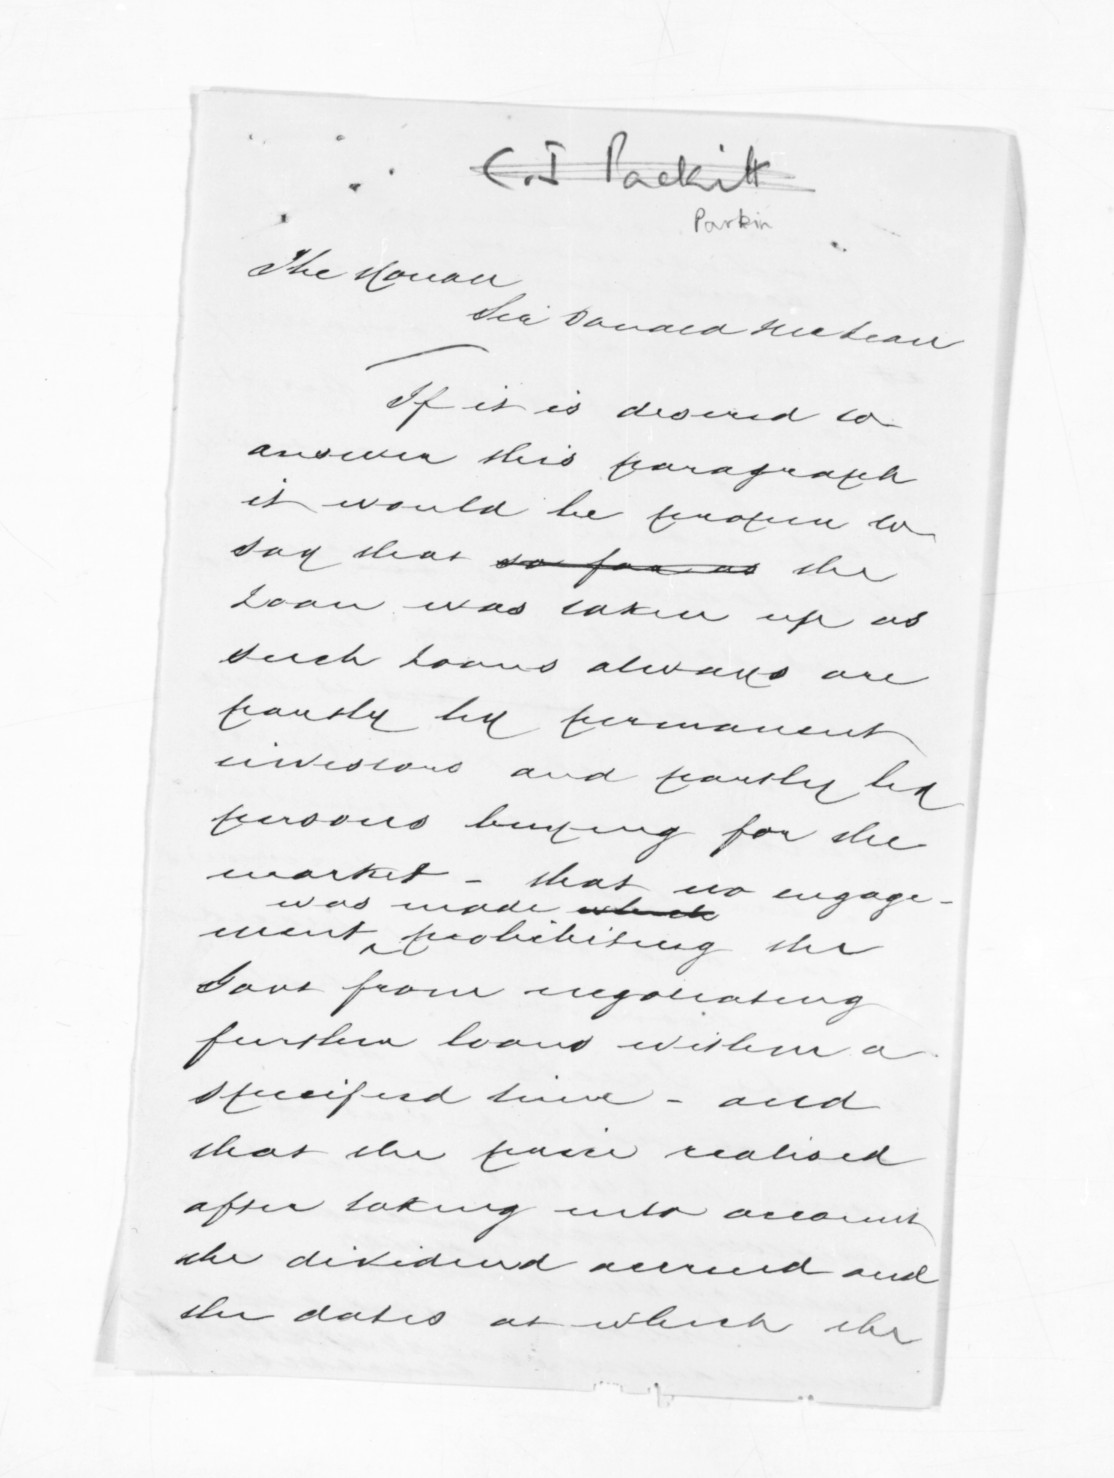 C. J Packitt
Parkin
The Honble
Sir Donald McLean
If it is desired to
answer this paragraph
it would be proper to
say that so far as the
Loan was taken up as
such Loans always are
partly by permanent
investors and partly by
persons buying for the
market - that no engage-
was made which
ment prohibiting the
Govt from negotiating
further loans within a
specified time - and
that the price realised
after taking into account
the dividend accrued and
the dates at which the